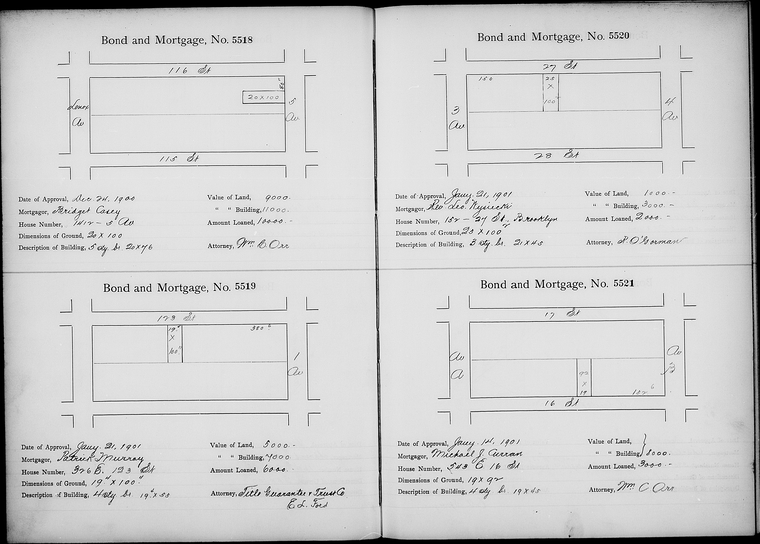 Bond and Mortgage, No. 5518
116 St
Lenox Av
20 x 100
5 Av
115 St
Date of Approval, Dec. 24, 1900
Mortgagor, Bridget Casey
House Number, 1412 - 5 Av
Dimensions of Ground, 20 x 100
Description of Building, 5 sty br. 20x76
Value of Land, 9000.
" " Building, 11000.
Amount Loaned, 10000.-
Attorney, Wm C Orr
Bond and Mortgage, No. 5519
123 St
19" x 100"
300"
1 Av
Date of Approval, Jany. 21, 1901
Mortgagor, Patrick J Murray
House Number, 326 E. 123 St
Dimensions of Ground, 19" x 100"
Description of Building, 4 sty br 19" x 50
Value of Land, 5000.-
" " Building, 7000
Amount Loaned, 6000.-
Attorney, Title Guarantee & Trust Co
E. L. Ford
Bond and Mortgage, No. 5520
27 St
150
25 x 100
3 Av
4 Av
28 St
Date of Approval, Jany. 21, 1901
Mortgagor, Rev Leo.
House Number, 152 - 27 St. Brooklyn
Dimensions of Ground, 25 x 100
Description of Building, 3 sty. br. 21 x 45
Value of Land, 1000.-
" " Building, 3000.-
Amount Loaned, 2000.-
Attorney, O'Gorman
Bond and Mortgage, No. 5521
17 St
Av A
92 x 19
Av B
16 St
Date of Approval, Jany. 14, 1901
Mortgagor, Michael J Curran
House Number, 543 E. 16 St
Dimensions of Ground, 19 x 92
Description of Building, 4 sty br 19 x 45
Value of Land,
" " Building, 8000.
Amount Loaned, 3000.-
Attorney, Wm C Orr